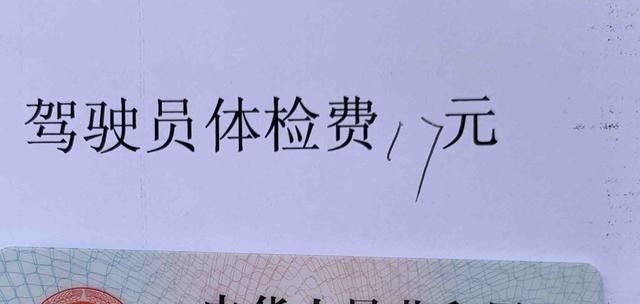 驾驶员体检费17元